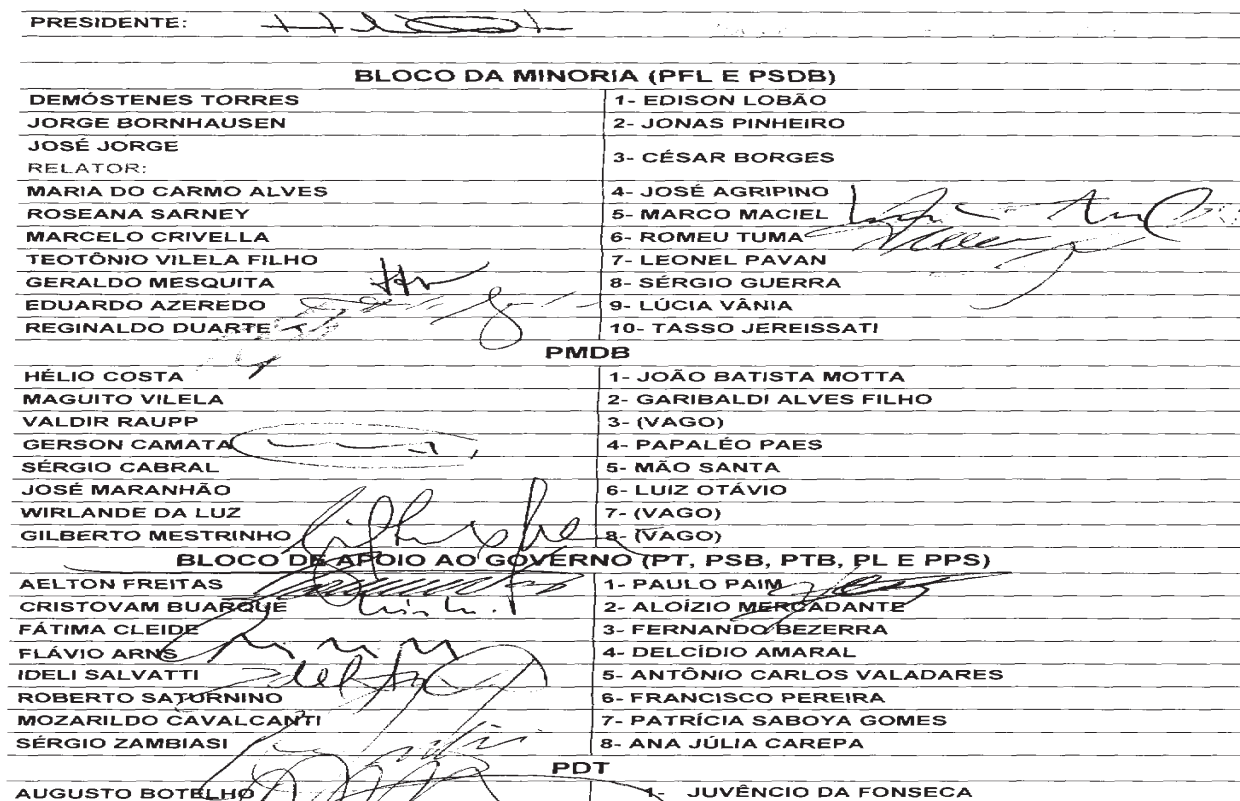 PRESIDENTE:
BLOCO DA MINORIA (PFL E PSDB)
DEMÓSTENES TORRES 1- EDISON LOBÃO
JORGE BORNHAUSEN 2- JONAS PINHEIRO
JOSÉ JORGE
RELATOR: 3- CÉSAR BORGES
MARIA DO CARMO ALVES 4- JOSÉ AGRIPINO
ROSEANA SARNEY 5- MARCO MACIEL
MARCELO CRIVELLA 6- ROMEU TUMA
TEOTÔNIO VILELA FILHO 7- LEONEL PAVAN
GERALDO MESQUITA 8- SÉRGIO GUERRA
EDUARDO AZEREDO 9- LÚCIA VÂNIA
REGINALDO DUARTE 10- TASSO JEREISSATI
PMDB
HÉLIO COSTA 1- JOÃO BATISTA MOTTA
MAGUITO VILELA 2- GARIBALDI ALVES FILHO
VALDIR RAUPP 3- (VAGO)
GERSON CAMATA 4- PAPALÉO PAES
SÉRGIO CABRAL 5- MÃO SANTA
JOSÉ MARANHÃO 6- LUIZ OTÁVIO
WIRLANDE DA LUZ 7- (VAGO)
GILBERTO MESTRINHO 8- (VAGO)
BLOCO DE APOIO AO GOVERNO (PT, PSB, PTB, PL E PPS)
AELTON FREITAS 1- PAULO PAIM
CRISTOVAM BUARQUE 2- ALOÍZIO MERCADANTE
FÁTIMA CLEIDE 3- FERNANDO BEZERRA
FLÁVIO ARNS 4- DELCÍDIO AMARAL
IDELI SALVATTI 5- ANTÔNIO CARLOS VALADARES
ROBERTO SATURNINO 6- FRANCISCO PEREIRA
MOZARILDO CAVALCANTI 7- PATRÍCIA SABOYA GOMES
SÉRGIO ZAMBIASI 8- ANA JÚLIA CAREPA
PDT
AUGUSTO BOTELHO 1- JUVÊNCIO DA FONSECA